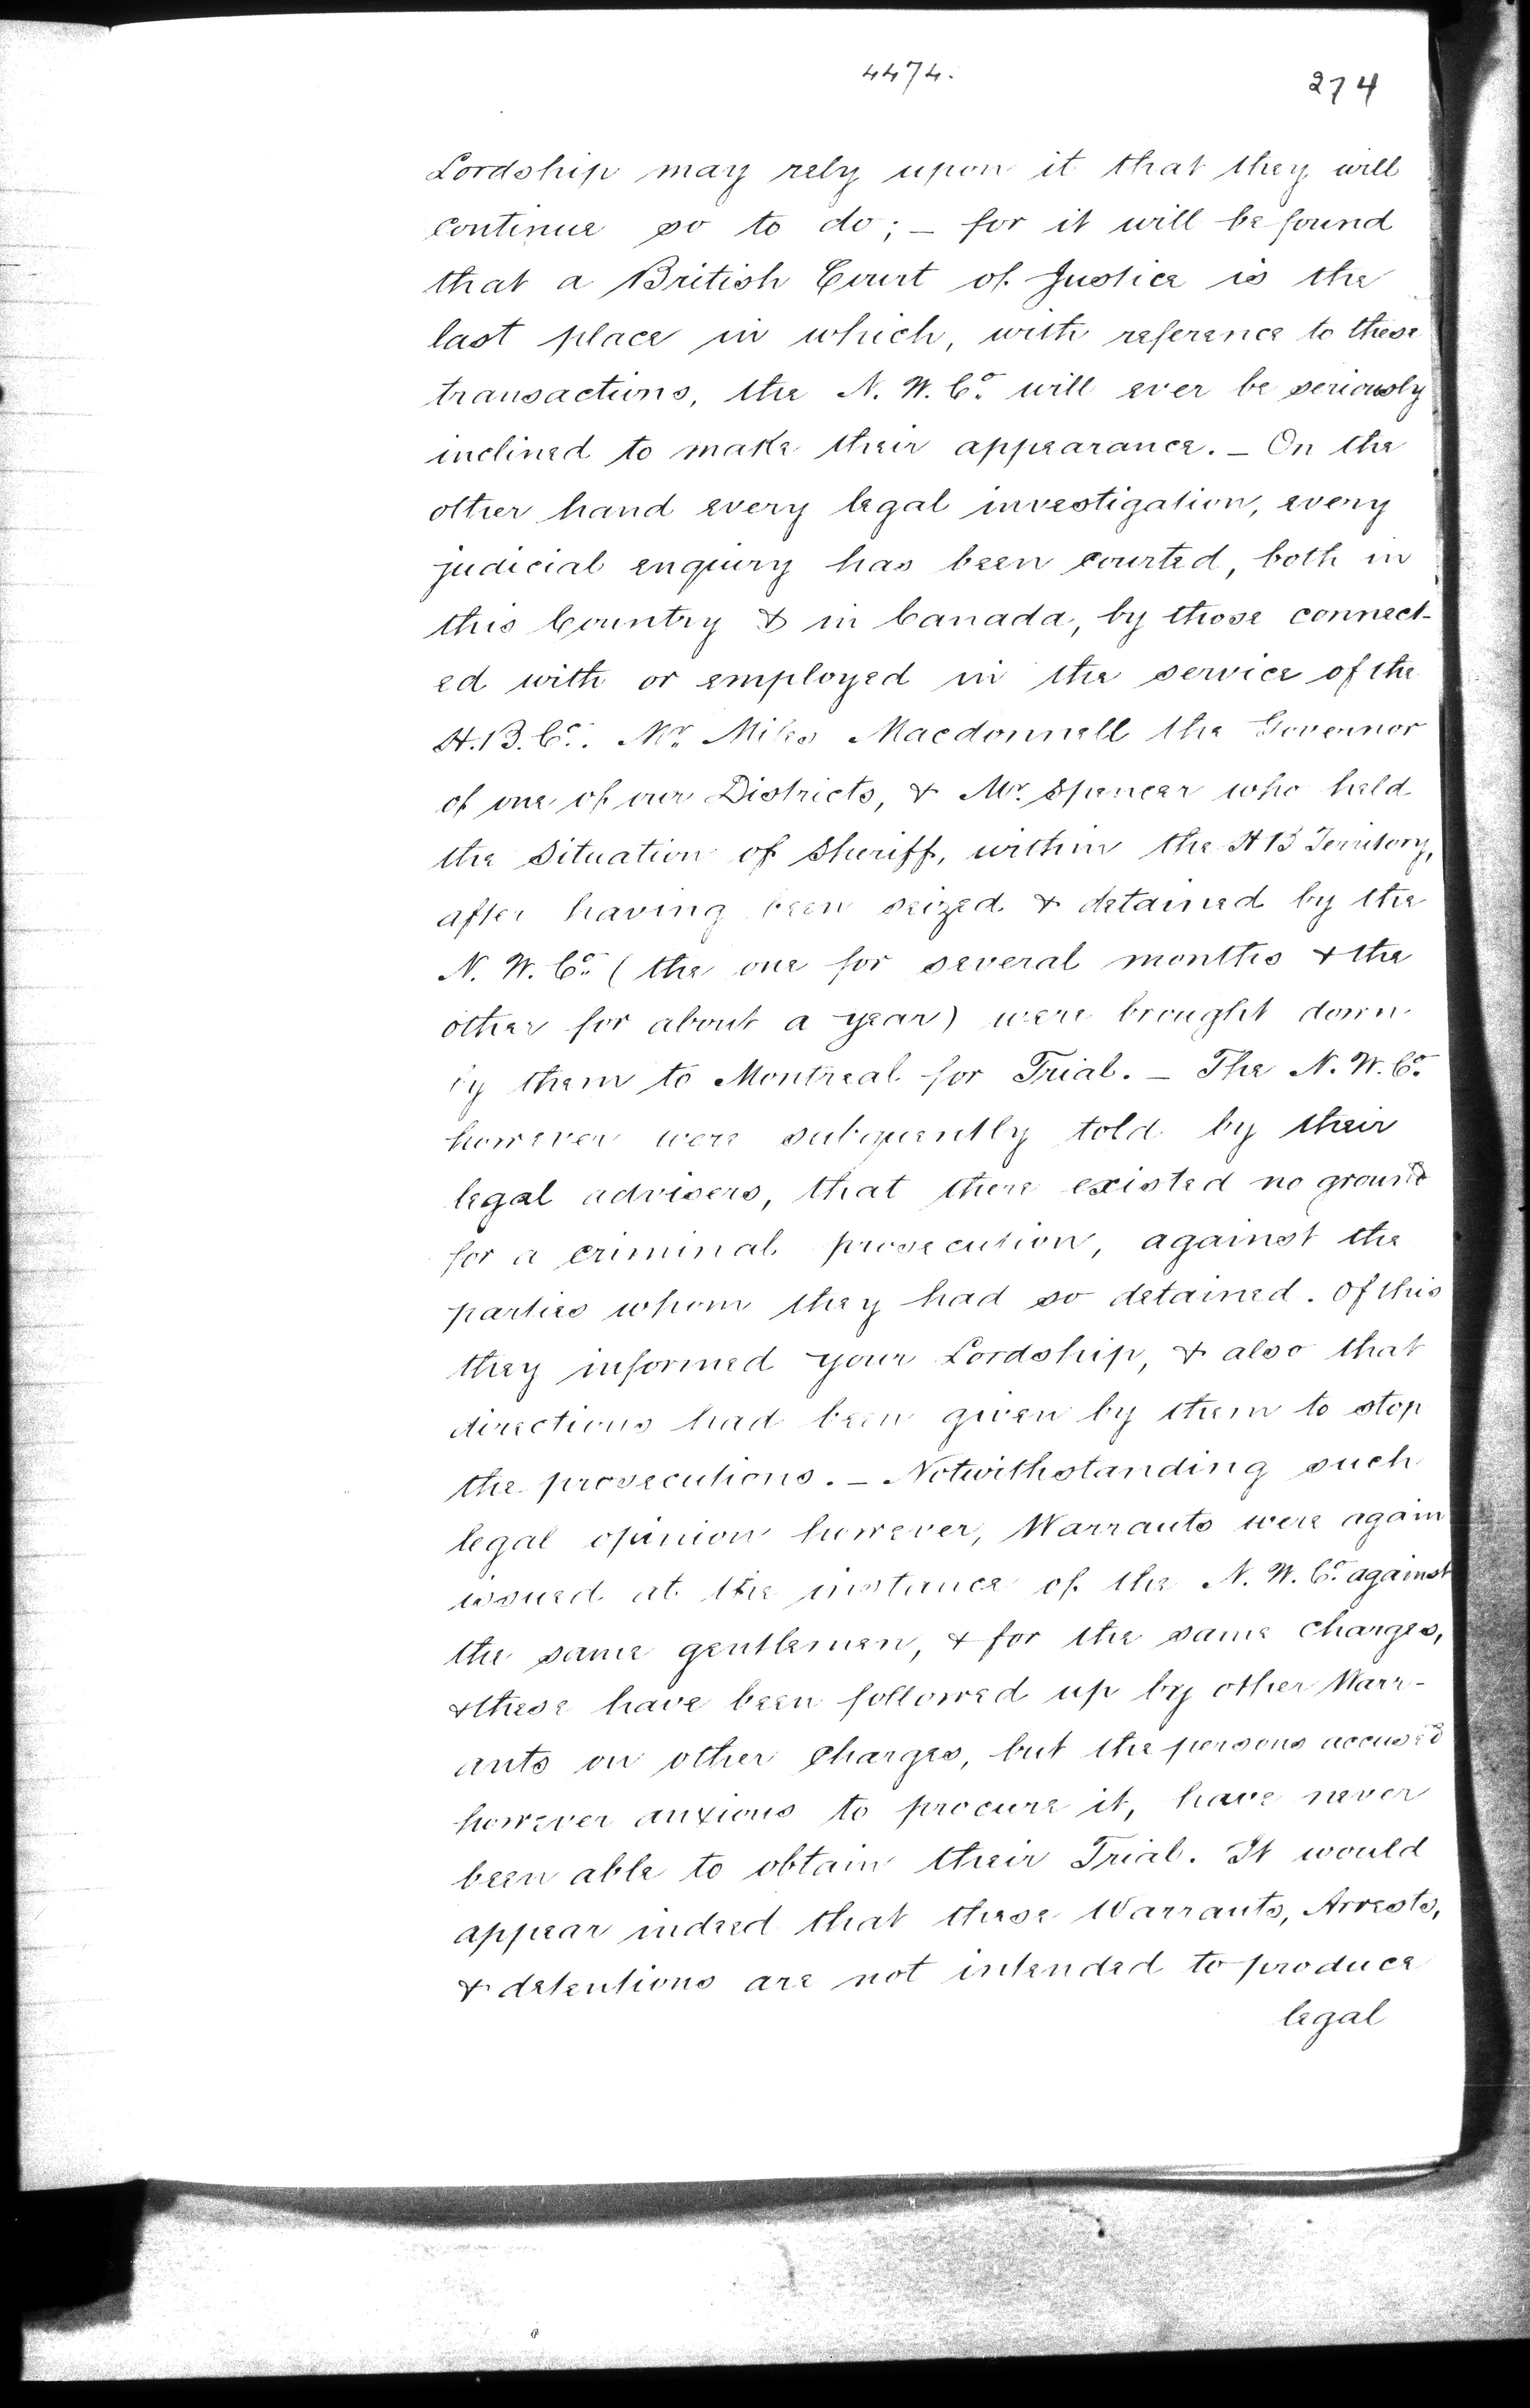 4474.
274
Lordship may rely upon it that they will
continue so to do; – for it will be found
that a British Court of Justice is the
last place in which, with reference to these
transactions, the N. W. Co. will ever be seriously
inclined to make their appearance. – On the
other hand every legal investigation, every
judicial enquiry has been courted, both in
this Country & in Canada, by those connect-
ed with or employed in the service of the
H. B. Co. Mr. Miles Macdonnell the Governor
of one of our Districts, & Mr. Spencer who held
the Situation of Sheriff, within the H B Territory,
after having been seized & detained by the
N. W. Co. (the one for several months & the
other for about a year) were brought down
by them to Montreal for Trial. – The N. W. Co.
however were subquently told by their
legal advisers, that there existed no ground
for a criminal prosecution, against the
parties whom they had so detained. Of this
they informed your Lordship, & also that
directions had been given by them to stop
the prosecutions. – Notwithstanding such
legal opinion however, Warrants were again
issued at the instance of the N. W. Co. against
the same gentlemen, & for the same charges,
& these have been followed up by other Warr-
ants on other charges, but the persons accused
however anxious to procure it, have never
been able to obtain their Trial. It would
appear indeed that these Warrants, Arrests,
& detentions are not intended to produce
legal